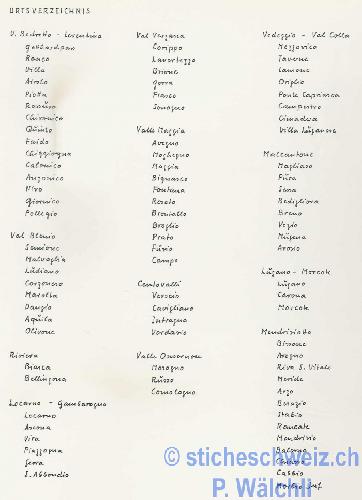 ORTSVERZEICHNIS
V. Bedretto - Leventina
Gotthardpass
Ronco
Villa
Airolo
Piotta
Chironico
Quinto
Faido
Chiggiogna
Calonico
Anzonico
Nivo
Giornico
Pollegio
Val Blenio
Semione
Malvaglia
Lüdiano
Corzoneso
Marolta
Dangio
Aquila
Olivone
Riviera
Biasca
Bellinzona
Locarno - Gambarogno
Locarno
Ascona
Vira
Piazzogna
Gerra
S. Abbondio
Val Verzasca
Corippo
Lavertezzo
Brione
Gerra
Frasco
Sonogno
Valle Maggia
Avegno
Moghegno
Maggia
Bignasco
Fontana
Roseto
Brontallo
Broglio
Prato
Füsio
Campo
Centovalli
Verscio
Cavigliano
Intragna
Verdasio
Valle Onsernone
Mosogno
Rüsso
Comologno
Vedeggio - Val Colla
Mezzovico
Taverne
Lamone
Origlio
Ponte Capriasca
Campestro
Cimadera
Villa Lüganese
Malcantone
Magliaso
Püra
Sessa
Bedigliora
Breno
Vezio
Mügena
Arosio
Lügano - Morcote
Lügano
Carona
Morcote
Mendrisiotto
Bissone
Arogno
Riva S. Vitale
Meride
Arzo
Besazio
Stabio
Rancate
Mendrisio
Salorino
Casima
Cabbio
© sticheschweiz.ch
P. Wälchli